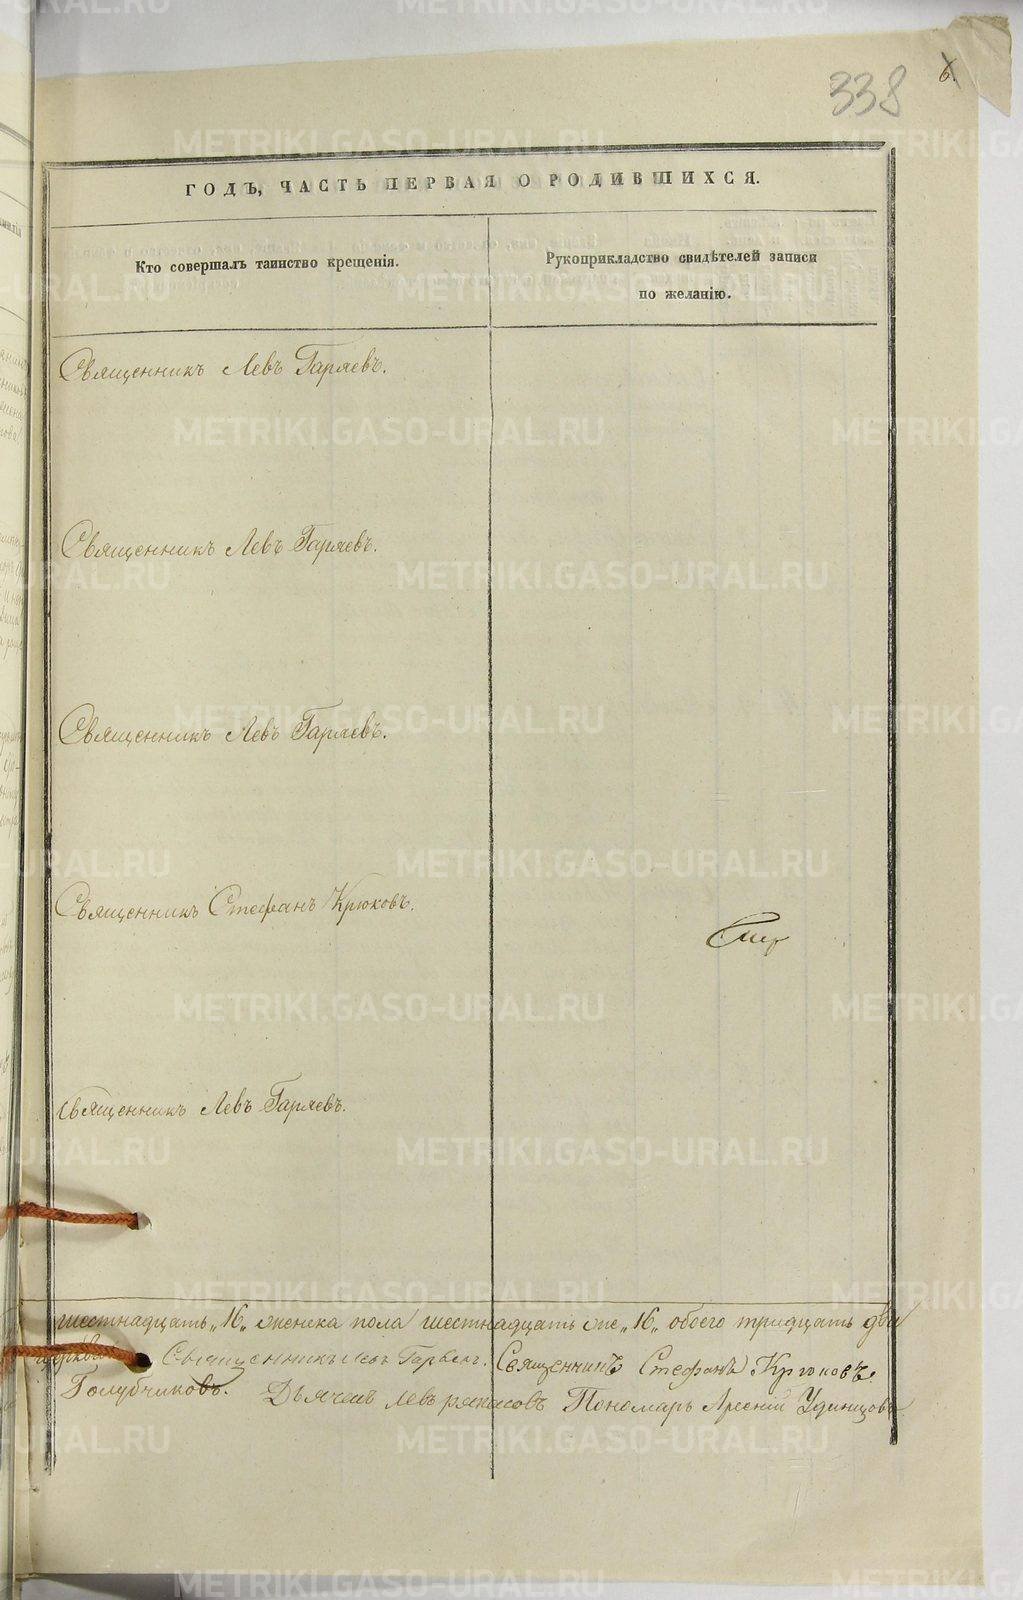 338
6
ГОДЪ, ЧАСТЬ ПЕРВАЯ О РОДИВШИХСЯ.
Кто совершалъ таинство крещенія.
Рукоприкладство свидѣтелей записи
по желанію.
Священникъ Левъ Гаряевъ.
Священникъ Левъ Гаряевъ.
Священникъ Левъ Гаряевъ.
Священникъ Стефанъ Крюковъ.
Священникъ Левъ Гаряевъ.
шестнадцать „16„ женска пола шестнадцать же „16„ обоего тридцать два
церкви Священникъ Левъ Гаряевъ. Священникъ Стефанъ Крюковъ.
Голубчиковъ. Дьячекъ Левъ Пономарь Арсеній Удинцовъ
METRIKI.GASO-URAL.RU